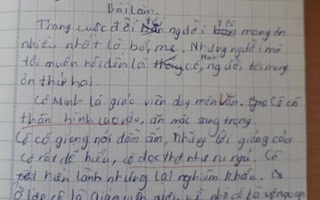 Bài làm.
Trong cuộc đời người tôi mang ơn
nhiều nhất là bố, mẹ. Nhưng người mà
tôi muốn nói đến là cô Minh, người tôi mang
ơn thứ hai.
Cô Minh là giáo viên dạy môn Văn. Cô có
thân hình cao ráo, ăn mặc sang trọng.
Cô có giọng nói đầm ấm, những lời giảng của
cô rất dễ hiểu, cô đọc thơ như ru ngủ. Cô
rất hiền lành nhưng lại nghiêm khắc.
cô là giáo viên